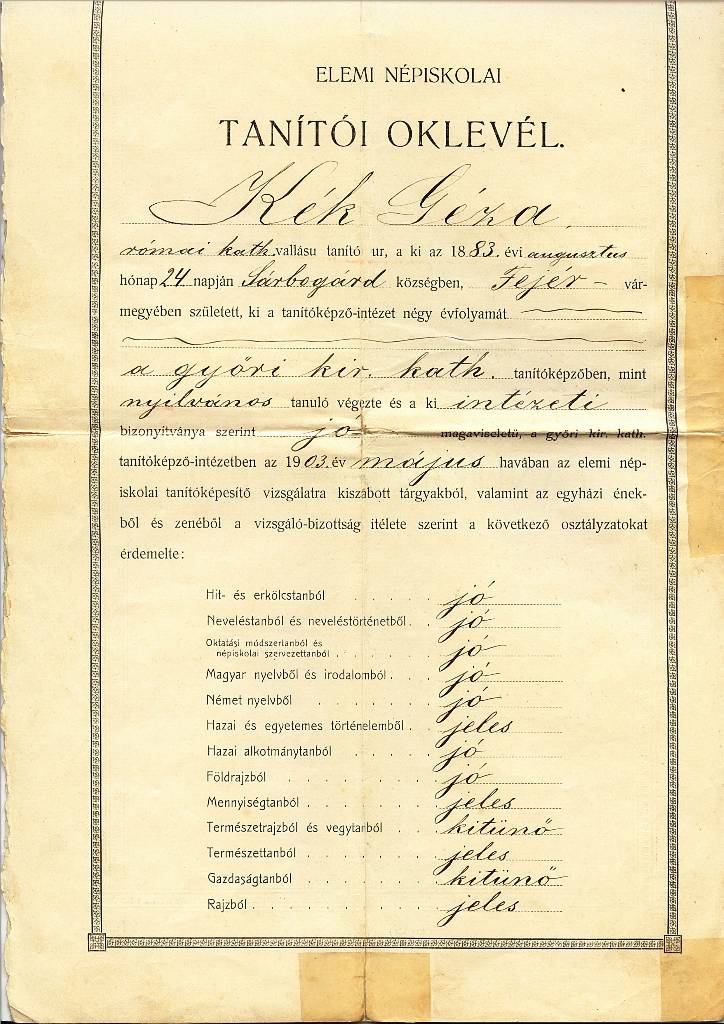 ELEMI NÉPISKOLAI
TANÍTÓI OKLEVÉL.
Kék Géza.
római kath. vallásu tanító ur, a ki az 1883. évi augusztus
hónap 24 napján Sárbogárd községben, Fejér – vár-
megyében született, ki a tanítóképző-intézet négy évfolyamát
a győri kir. kath. tanítóképzőben, mint
nyilvános tanuló végezte és a ki intézeti
bizonyitványa szerint jó magaviseletü, a győri kir. kath.
tanítóképző-intézetben az 1903. év május havában az elemi nép-
iskolai tanítóképesítő vizsgálatra kiszabott tárgyakból, valamint az egyházi ének-
ből és zenéből a vizsgáló-bizottság itélete szerint a következő osztályzatokat
érdemelte:
Hit- és erkölcstanból . . . . . jó
Neveléstanból és neveléstörténetből . . jó
Oktatási módszertanból és
népiskolai szervezettanból . . . . . jó
Magyar nyelvből és irodalomból . . . jó
Német nyelvből . . . . . jó
Hazai és egyetemes történelemből . . jeles
Hazai alkotmánytanból . . . . jó
Földrajzból . . . . . . . jó
Mennyiségtanból . . . . . . jeles
Természetrajzból és vegytanból . . . kitünő
Természettanból . . . . . . jeles
Gazdaságtanból . . . . . . kitünő
Rajzból . . . . . . . . jeles